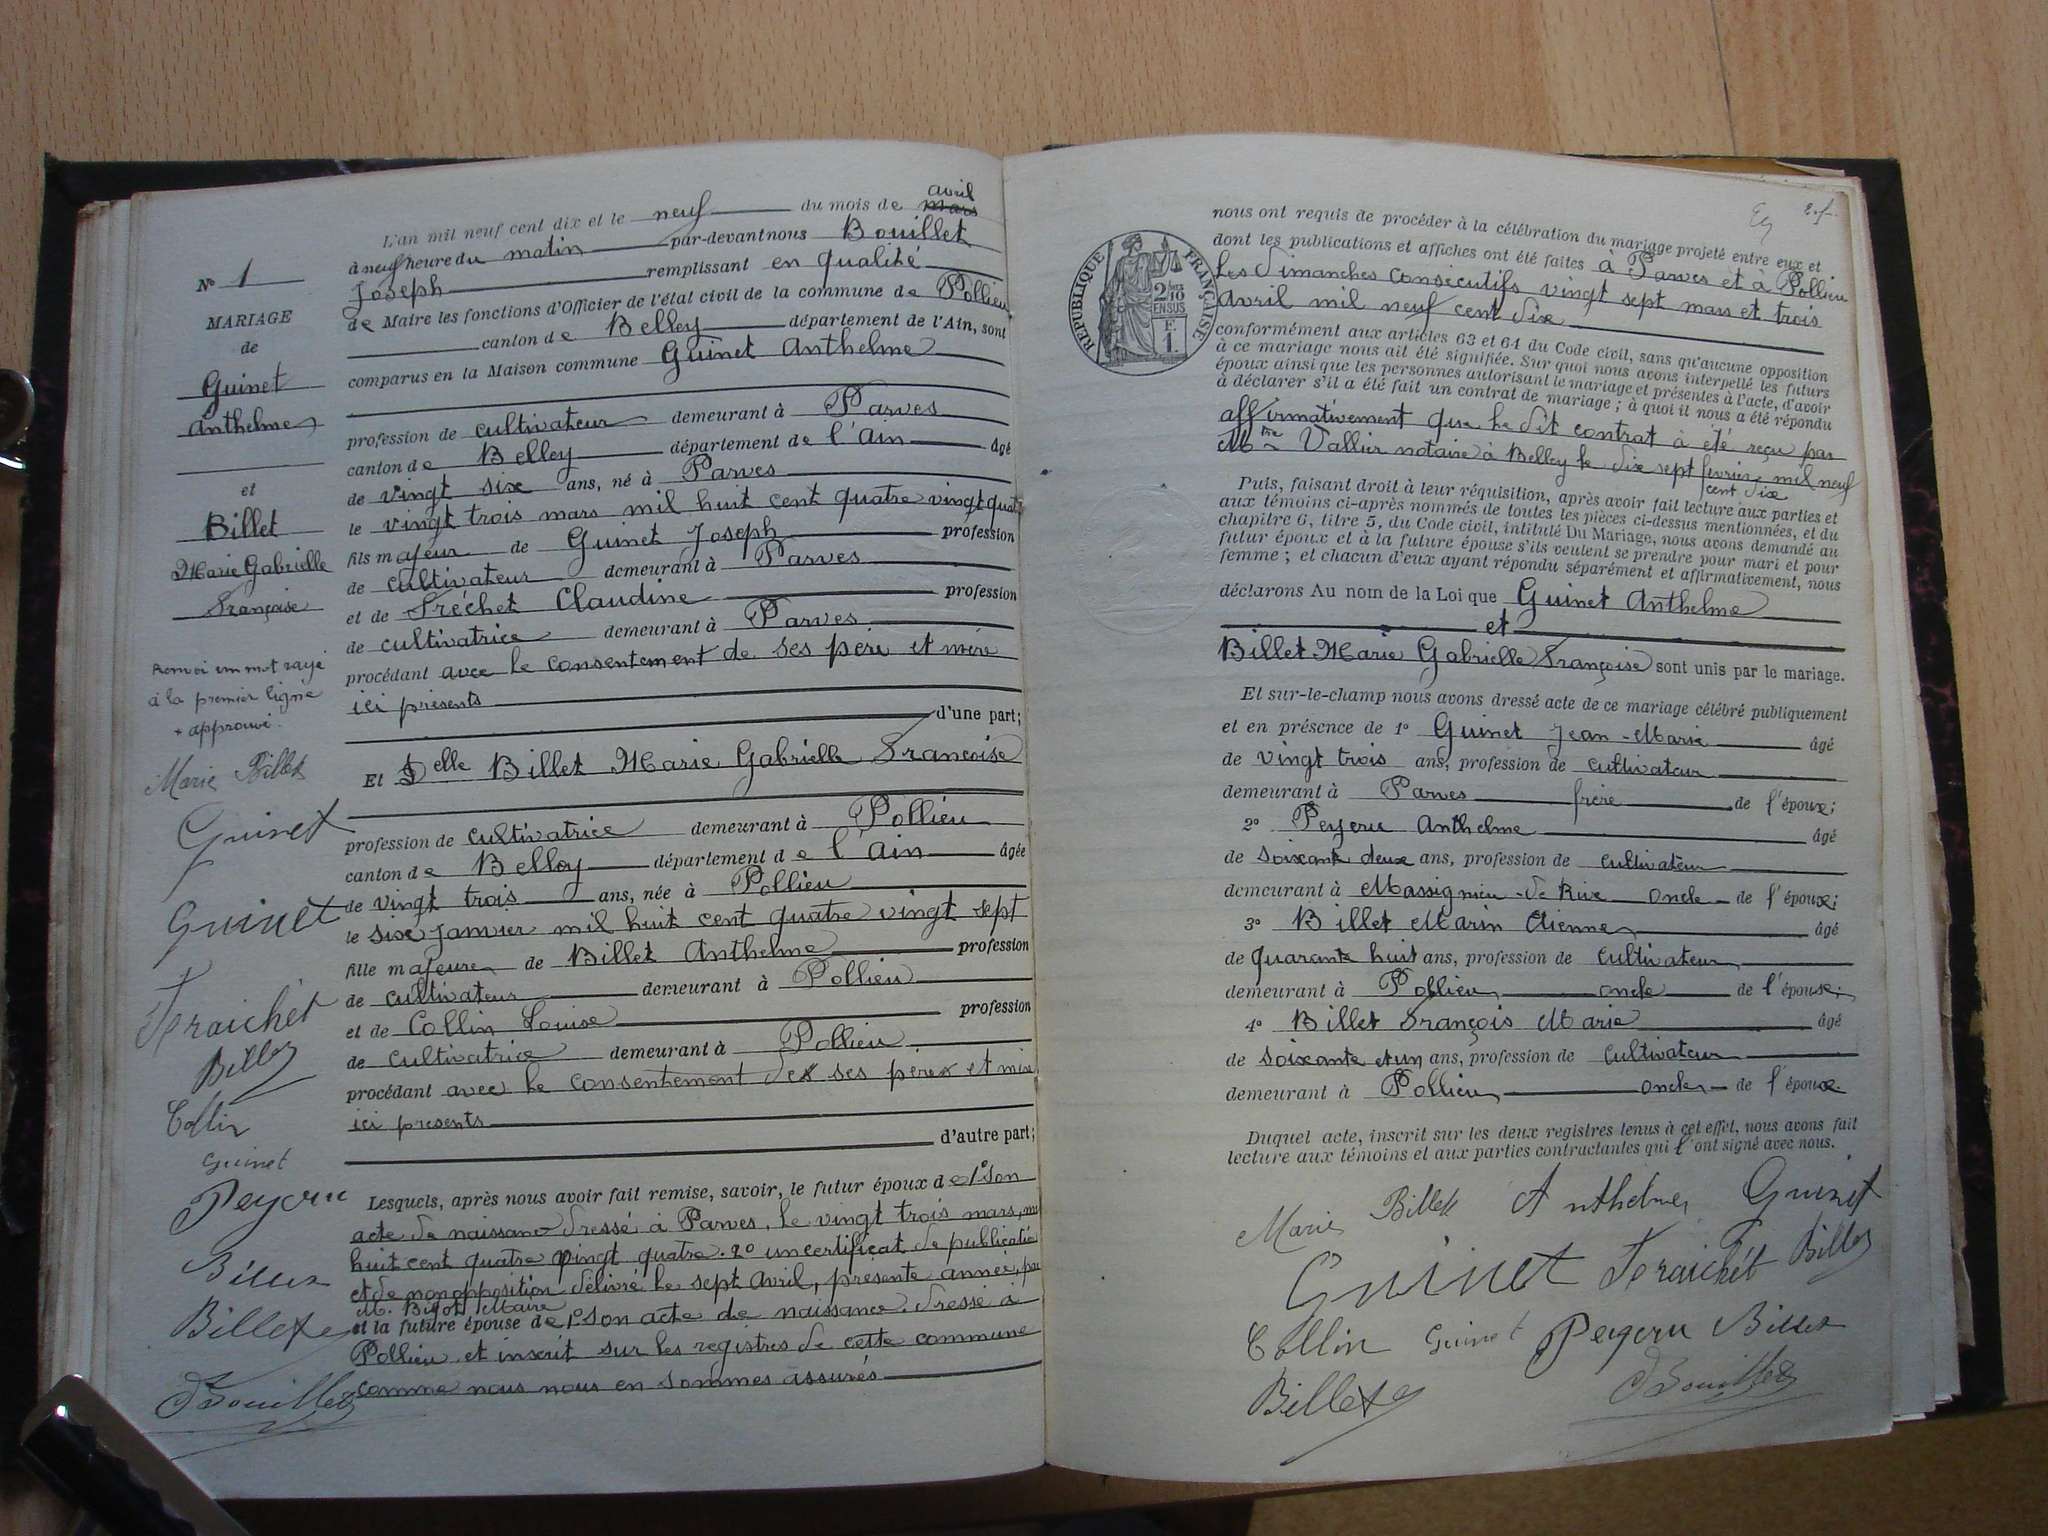 N° 1
MARIAGE
de
Guinet
Anthelme
et
Billet
Marie Gabrielle
Françoise
Renvoi un mot rayé
à la premier ligne
+ approuvé.
Marie Billet
Guinet
Guinet
Feraichet
Billet
Collin
Guinet
Peyeru
Billet
Billet
Bouillet
L'an mil neuf cent dix et le neuf du mois de mars avril
à neuf heure du matin par-devant nous Bouillet
Joseph remplissant en qualité
de Maire les fonctions d'Officier de l'état civil de la commune de Pollieu
canton de Belley département de l'Ain, sont
comparus en la Maison commune Guinet Anthelme
profession de cultivateur demeurant à Parves
canton de Belley département de l'Ain âgé
de vingt six ans, né à Parves
le vingt trois mars mil huit cent quatre vingt quatre
fils majeur de Guinet Joseph profession
de cultivateur demeurant à Parves
et de Fréchet Claudine profession
de cultivatrice demeurant à Parves
procédant avec le consentement de ses père et mère
ici présents
d'une part;
Et Delle Billet Marie Gabrielle Françoise
profession de cultivatrice demeurant à Pollieu
canton de Belley département de l'Ain âgée
de vingt trois ans, née à Pollieu
le six janvier mil huit cent quatre vingt sept
fille majeure de Billet Anthelme profession
de cultivateur demeurant à Pollieu
et de Collin Louise profession
de cultivatrice demeurant à Pollieu
procédant avec le consentement des ses pères et mère
ici presents
d'autre part;
Lesquels, après nous avoir fait remise, savoir, le futur époux de 1° son
acte de naissance dressé à Parves, le vingt trois mars, mil
huit cent quatre vingt quatre. 2° un certificat de publication
et de non opposition délivré le sept Avril, présente année, par
M. Maire
et la future épouse de 1° son acte de naissance dressé à
Pollieu et inscrit sur les registres de cette commune
comme nous nous en sommes assurés
RÉPUBLIQUE FRANÇAISE
2/10
EN SUS
F.
1.
nous ont requis de procéder à la célébration du mariage projeté entre eux et
dont les publications et affiches ont été faites à Parves et à Pollieu
Les dimanches consécutifs vingt sept mars et trois
Avril mil neuf cent dix
conformément aux articles 63 et 64 du Code civil, sans qu'aucune opposition
à ce mariage nous ait été signifiée. Sur quoi nous avons interpellé les futurs
époux ainsi que les personnes autorisant le mariage et présentes à l'acte, d'avoir
à déclarer s'il a été fait un contrat de mariage; à quoi il nous a été répondu
affirmativement que le dit contrat à été reçu par
Mtre Vallier notaire à Belley le dix sept février mil neuf
cent dix
Puis, faisant droit à leur réquisition, après avoir fait lecture aux parties et
aux témoins ci-après nommés de toutes les pièces ci-dessus mentionnées, et du
chapitre 6, titre 5, du Code civil, intitulé Du Mariage, nous avons demandé au
futur époux et à la future épouse s'ils veulent se prendre pour mari et pour
femme; et chacun d'eux ayant répondu séparément et affirmativement, nous
déclarons Au nom de la Loi que Guinet Anthelme
et
Billet Marie Gabrielle Françoise sont unis par le mariage.
Et sur-le-champ nous avons dressé acte de ce mariage célébré publiquement
et en présence de 1° Guinet Jean-Marie âgé
de vingt trois ans, profession de cultivateur
demeurant à Parves frère de l'époux;
2° Peyeru Anthelme âgé
de soixante deux ans, profession de cultivateur
demeurant à Massignieu-de Rive oncle de l'époux;
3° Billet Marin Etienne âgé
de quarante huit ans, profession de cultivateur
demeurant à Pollieu oncle de l'épouse;
4° Billet François Marie âgé
de soixante et un ans, profession de cultivateur
demeurant à Pollieu oncle de l'épouse.
Duquel acte, inscrit sur les deux registres tenus à cet effet, nous avons fait
lecture aux témoins et aux parties contractantes qui l'ont signé avec nous.
Marie Billet Anthelme Guinet
Guinet Feraichet Billet
Collin Guinet Peyeru Billet
Billet Bouillet